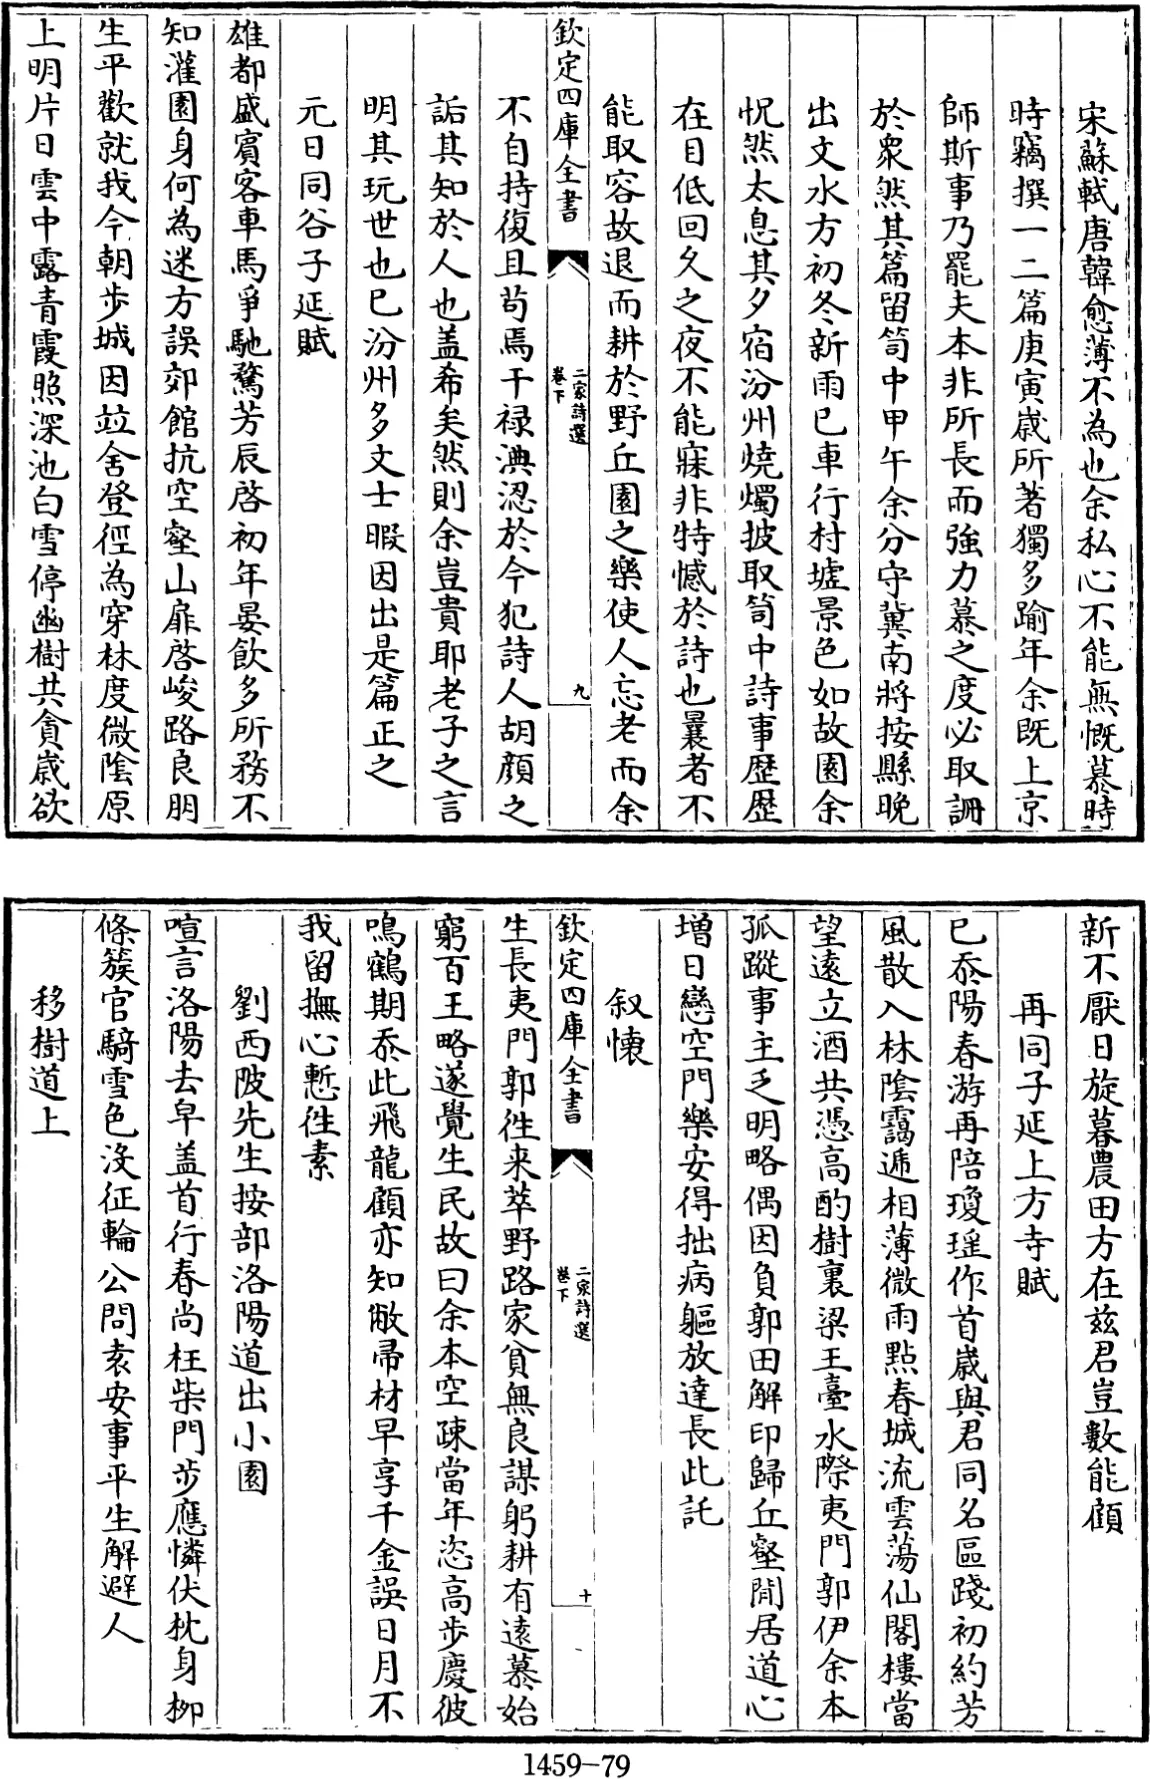 宋蘇軾唐韓愈薄不為也余私心不能無慨慕時
時竊撰一二篇庚寅歳所著獨多踰年余既上京
師斯事乃罷夫本非所長而強力慕之度必取誚
於衆然其篇留笥中甲午余分守冀南將按縣晚
出文水方初冬新雨已車行村墟景色如故園余
怳然太息其夕宿汾州燒燭披取笥中詩事歴歴
在目低回久之夜不能寐非特憾於詩也曩者不
能取容故退而耕於野丘園之樂使人忘老而余
欽定四庫全書
二家詩選
卷下
九
不自持復且苟焉干禄淟涊於今犯詩人胡顔之
詬其知於人也盖希矣然則余豈貴耶老子之言
明其玩世也已汾州多文士暇因出是篇正之
元日同谷子延賦
雄都盛賓客車馬爭馳騖芳辰啓初年宴飲多所務不
知灌園身何為迷方誤郊館抗空壑山扉啓峻路良朋
生平歡就我今朝歩城因竝舍登徑為穿林度微陰原
上明片日雲中露青霞照深池白雪停幽樹共貪歳欲
新不厭日旋暮農田方在兹君豈數能顧
再同子延上方寺賦
已忝陽春游再陪瓊瑶作首歳與君同名區踐初約芳
風散入林陰靄遞相薄微雨點春城流雲蕩仙閣樓當
望遠立酒共憑高酌樹裏梁王臺水際夷門郭伊余本
孤蹤事主乏明略偶因負郭田解印歸丘壑閒居道心
增日戀空門樂安得拙病軀放達長此託
叙懐
欽定四庫全書
二家詩選
卷下
十
生長夷門郭徃来萃野路家貧無良謀躬耕有逺慕始
窮百王略遂覺生民故曰余本空疎當年恣高歩慶彼
鳴鶴期忝此飛龍顧亦知敝帚材早享千金誤日月不
我留撫心慙徃素
劉西陂先生按部洛陽道出小園
喧言洛陽去皁盖首行春尚枉柴門歩應憐伏枕身栁
條簇官騎雪色沒征輪公問袁安事平生解避人
移樹道上
1459-79